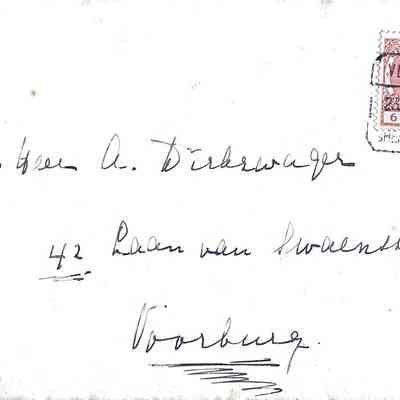 Heer A. Dirkzwager
42 Laan van Swaenst
Voorburg.